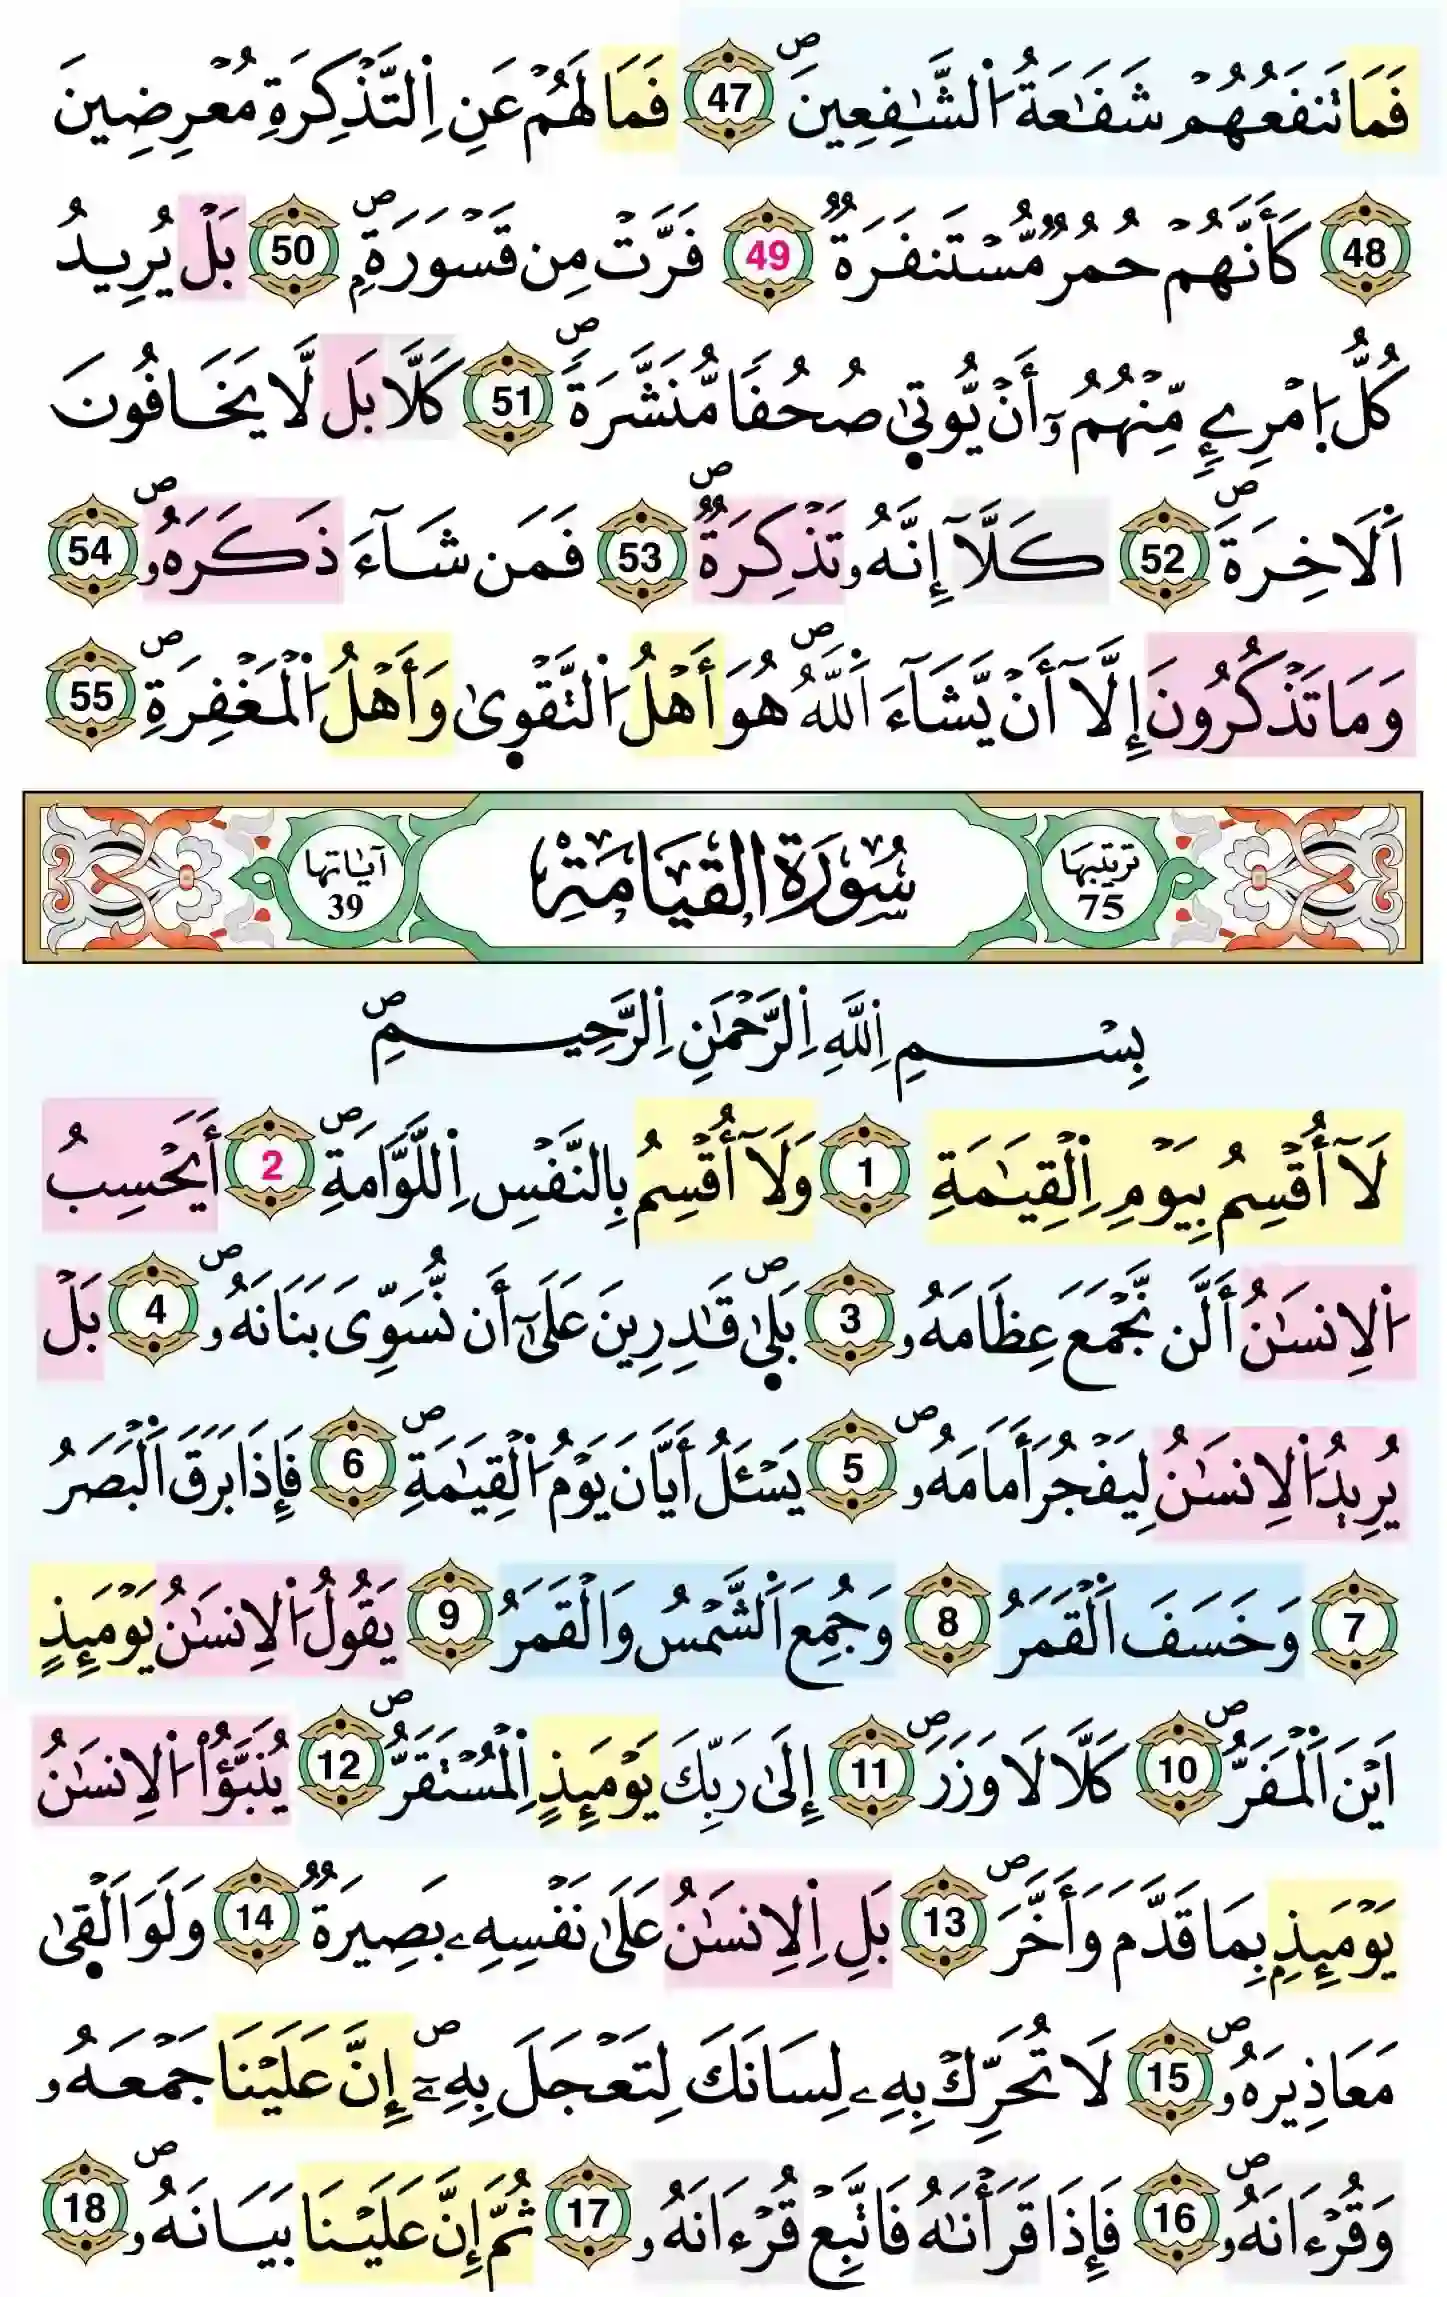 فَمَا تَنفَعُهُمْ شَفَٰعَةُ اُ۬لشَّٰفِعِينَۖ 47 فَمَا لَهُمْ عَنِ اِ۬لتَّذْكِرَةِ مُعْرِضِينَ
48 كَأَنَّهُمْ حُمُرٞ مُّسْتَنفَرَةٞ 49 فَرَّتْ مِن قَسْوَرَةِۢۖ 50 بَلْ يُرِيدُ
كُلُّ اُ۪مْرِےٕٖ مِّنْهُمُۥٓ أَنْ يُّوت۪يٰ صُحُفاٗ مُّنَشَّرَةٗۖ 51 كَلَّا بَل لَّا يَخَافُونَ
اَ۬لَاخِرَةَۖ 52 كَلَّآ إِنَّهُۥ تَذْكِرَةٞۖ 53 فَمَن شَآءَ ذَكَرَهُۥۖ 54
وَمَا تَذْكُرُونَ إِلَّآ أَنْ يَّشَآءَ اَ۬للَّهُۖ هُوَ أَهْلُ اُ۬لتَّقْو۪يٰ وَأَهْلُ اُ۬لْمَغْفِرَةِۖ 55
ترتيبها 75 سُورَةُ الْقِيَامَةِ آياتها 39
بِسْمِ اِ۬للَّهِ اِ۬لرَّحْمَٰنِ اِ۬لرَّحِيمِۖ
لَآ أُقْسِمُ بِيَوْمِ اِ۬لْقِيَٰمَةِ 1 وَلَآ أُقْسِمُ بِالنَّفْسِ اِ۬للَّوَّامَةِۖ 2 أَيَحْسِبُ
اُ۬لِانسَٰنُ أَلَّن نَّجْمَعَ عِظَامَهُۥ 3 بَل۪يٰۖ قَٰدِرِينَ عَلَىٰٓ أَن نُّسَوِّيَ بَنَانَهُۥۖ 4 بَلْ
يُرِيدُ اُ۬لِانسَٰنُ لِيَفْجُرَ أَمَامَهُۥۖ 5 يَسْـَٔلُ أَيَّانَ يَوْمُ اُ۬لْقِيَٰمَةِۖ 6 فَإِذَا بَرَقَ اَ۬لْبَصَرُ
7 وَخَسَفَ اَ۬لْقَمَرُ 8 وَجُمِعَ اَ۬لشَّمْسُ وَالْقَمَرُ 9 يَقُولُ اُ۬لِانسَٰنُ يَوْمَئِذٍ
اَيْنَ اَ۬لْمَفَرُّۖ 10 كَلَّا لَا وَزَرَۖ 11 إِلَىٰ رَبِّكَ يَوْمَئِذٍ اِ۬لْمُسْتَقَرُّۖ 12 يُنَبَّؤُاْ اُ۬لِانسَٰنُ
يَوْمَئِذِۢ بِمَا قَدَّمَ وَأَخَّرَۖ 13 بَلِ اِ۬لِانسَٰنُ عَلَىٰ نَفْسِهِۦ بَصِيرَةٞ 14 وَلَوَ اَلْق۪يٰ
مَعَاذِيرَهُۥۖ 15 لَا تُحَرِّكْ بِهِۦ لِسَانَكَ لِتَعْجَلَ بِهِۦٓۖ إِنَّ عَلَيْنَا جَمْعَهُۥ
وَقُرْءَانَهُۥۖ 16 فَإِذَا قَرَأْنَٰهُ فَاتَّبِعْ قُرْءَانَهُۥ 17 ثُمَّ إِنَّ عَلَيْنَا بَيَانَهُۥۖ 18